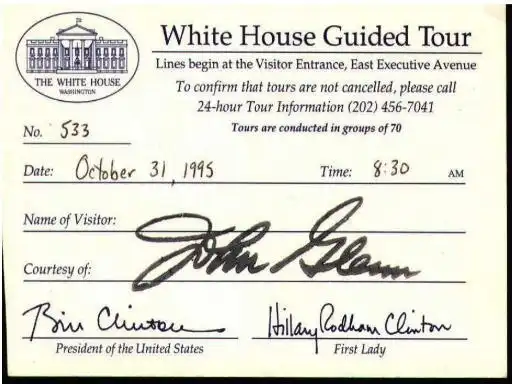 White House Guided Tour
Lines begin at the Visitor Entrance, East Executive Avenue
THE WHITE HOUSE
WASHINGTON
To confirm that tours are not cancelled, please call
24-hour Tour Information (202) 456-7041
Tours are conducted in groups of 70
No. 533
Date: October 31, 1995 Time: 8:30 AM
Name of Visitor:
John Glenn
Courtesy of:
Bill Clinton Hillary Rodham Clinton
President of the United States First Lady